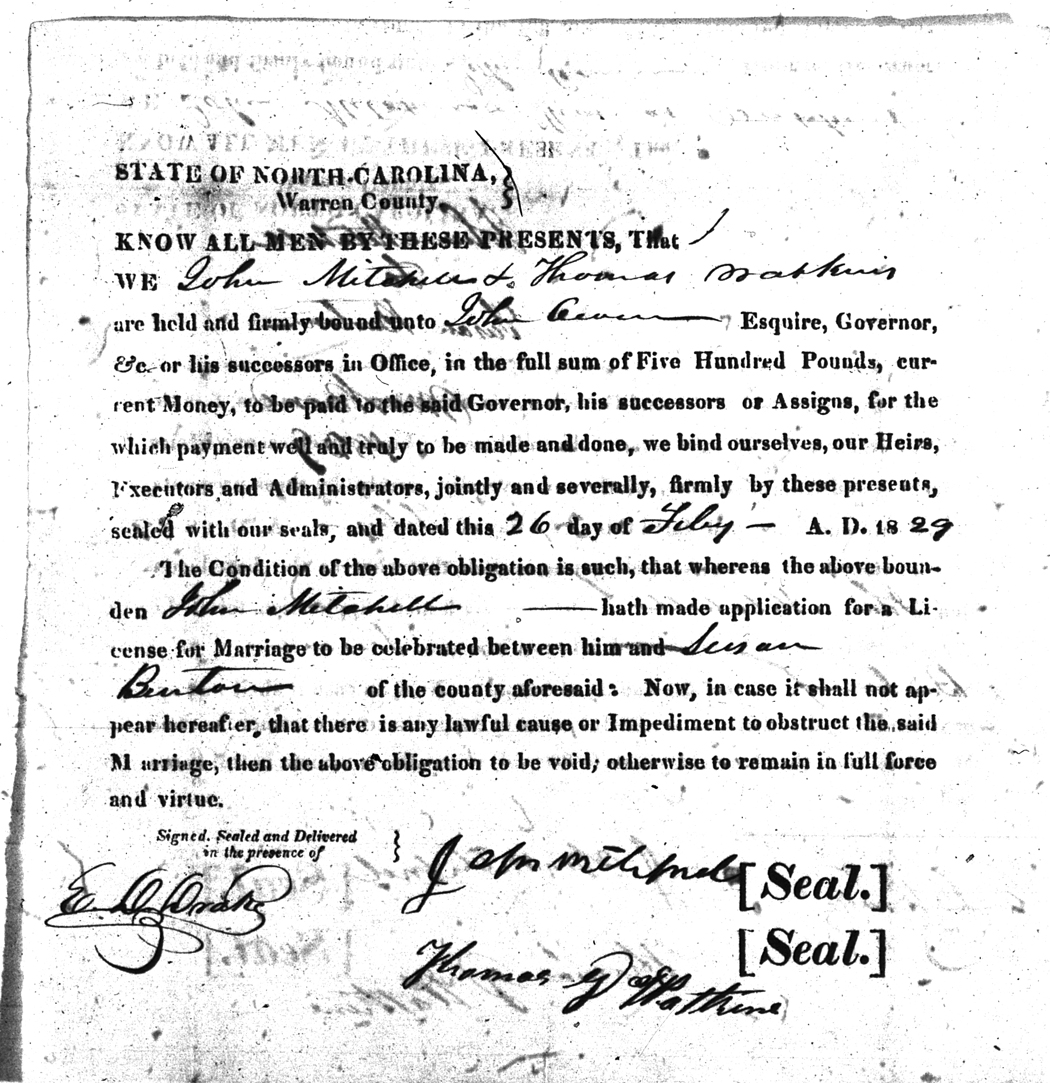 STATE OF NORTH-CAROLINA,
Warren County.
KNOW ALL MEN BY THESE PRESENTS, That
WE John Mitchell & Thomas Watkins
are held and firmly bound unto John Owen Esquire, Governor,
&c. or his successors in Office, in the full sum of Five Hundred Pounds, cur-
rent Money, to be paid to the said Governor, his successors or Assigns, for the
which payment well and truly to be made and done, we bind ourselves, our Heirs,
Executors and Administrators, jointly and severally, firmly by these presents,
sealed with our seals, and dated this 26 day of Feby — A. D. 1829
The Condition of the above obligation is such, that whereas the above boun-
den John Mitchell hath made application for a Li-
cense for Marriage to be celebrated between him and Susan
Benton of the county aforesaid: Now, in case it shall not ap-
pear hereafter, that there is any lawful cause or Impediment to obstruct the said
Marriage, then the above obligation to be void; otherwise to remain in full force
and virtue.
Signed, Sealed and Delivered
in the presence of
John Mitchell [Seal.]
E. D. Drake
[Seal.]
Thomas G Watkins